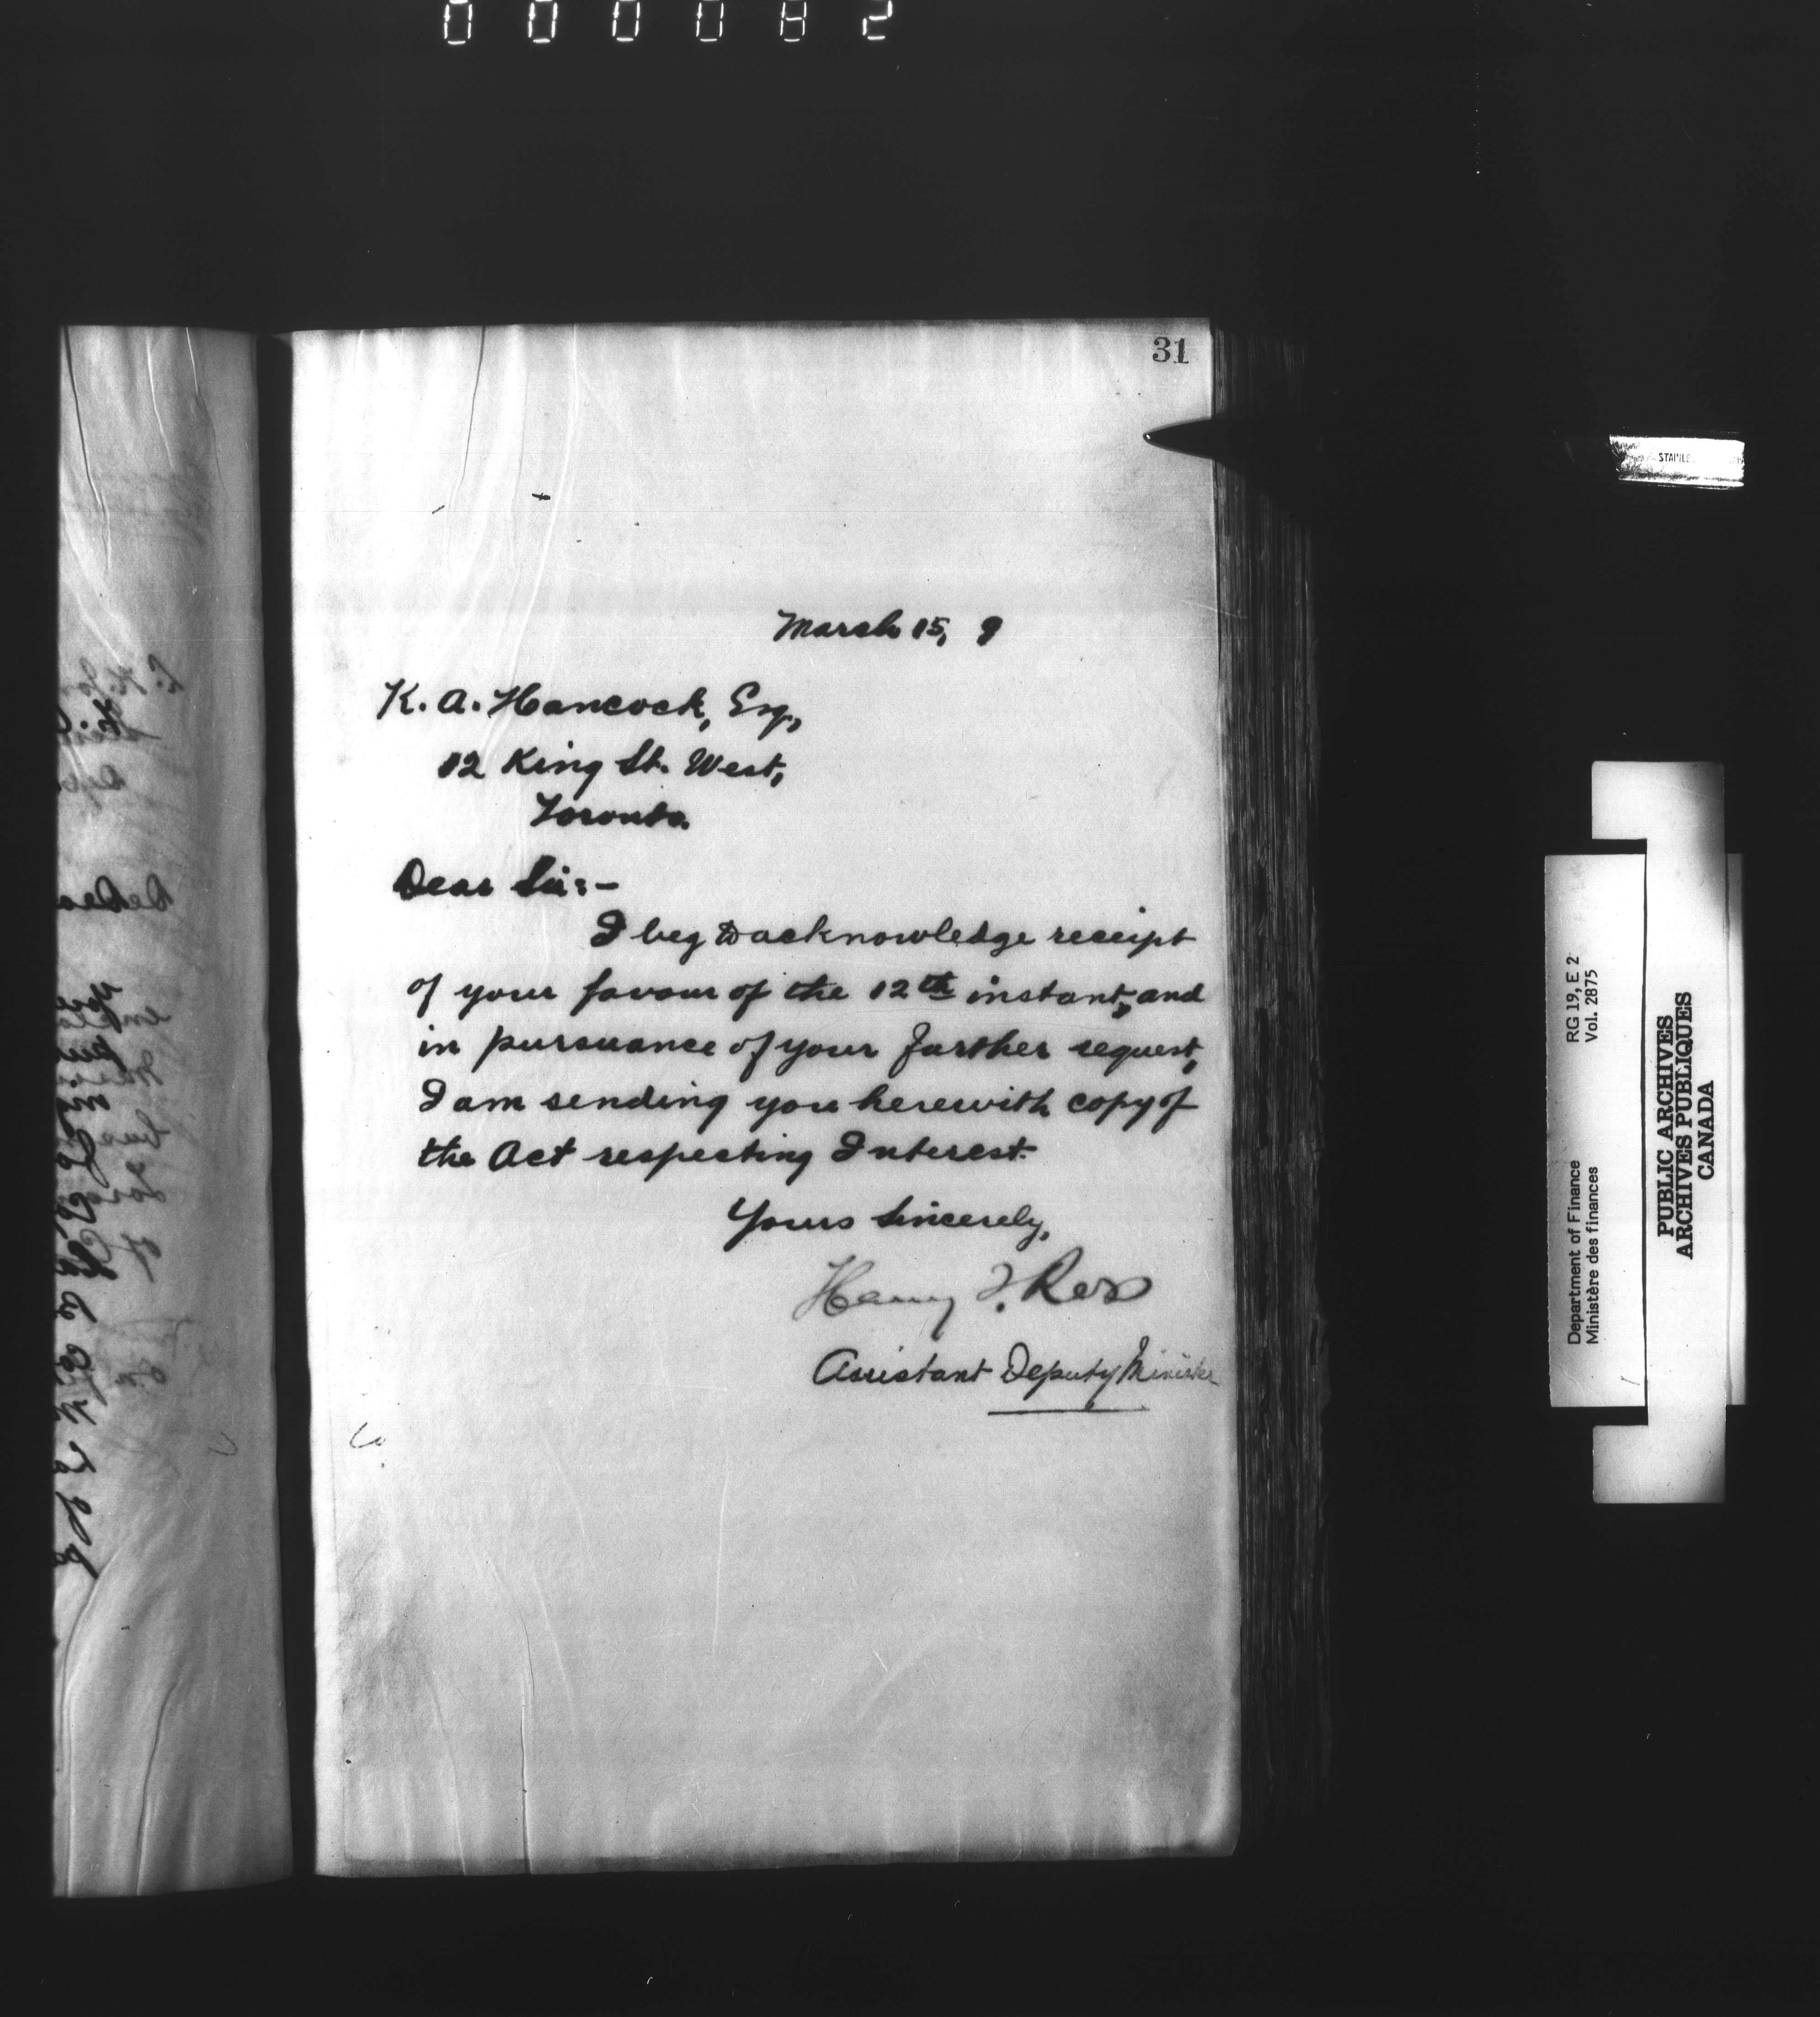 000082
31
March 15, 9
K. A. Hancock, Esq,
12 King St. West,
Toronto.
Dear Sir:-
I beg to acknowledge receipt
of your favour of the 12th instant, and
in pursuance of your further request,
I am sending you herewith copy of
the Act respecting Interest.
Yours sincerely,
Assistant Deputy Minister
STANLE
Department of Finance RG 19, E 2
Ministère des finances Vol. 2875
PUBLIC ARCHIVES
ARCHIVES PUBLIQUES
CANADA